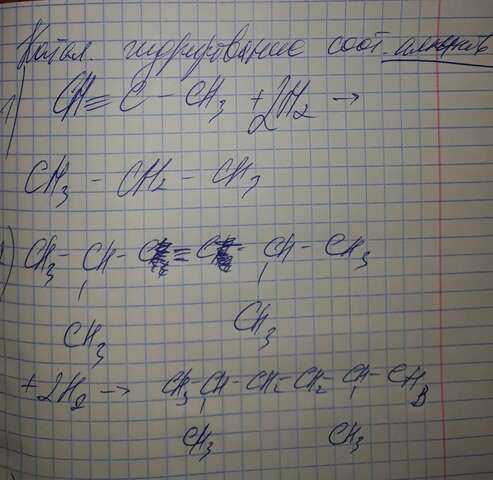 Катал. гидрирование соот. алкинов
1) CH≡C-CH3 + 2H2 →
CH3-CH2-CH3
2) CH3-CH-C≡C-CH-CH3
CH3 CH3
+ 2H2 → CH3-CH-CH2-CH2-CH-CH3
CH3 CH3